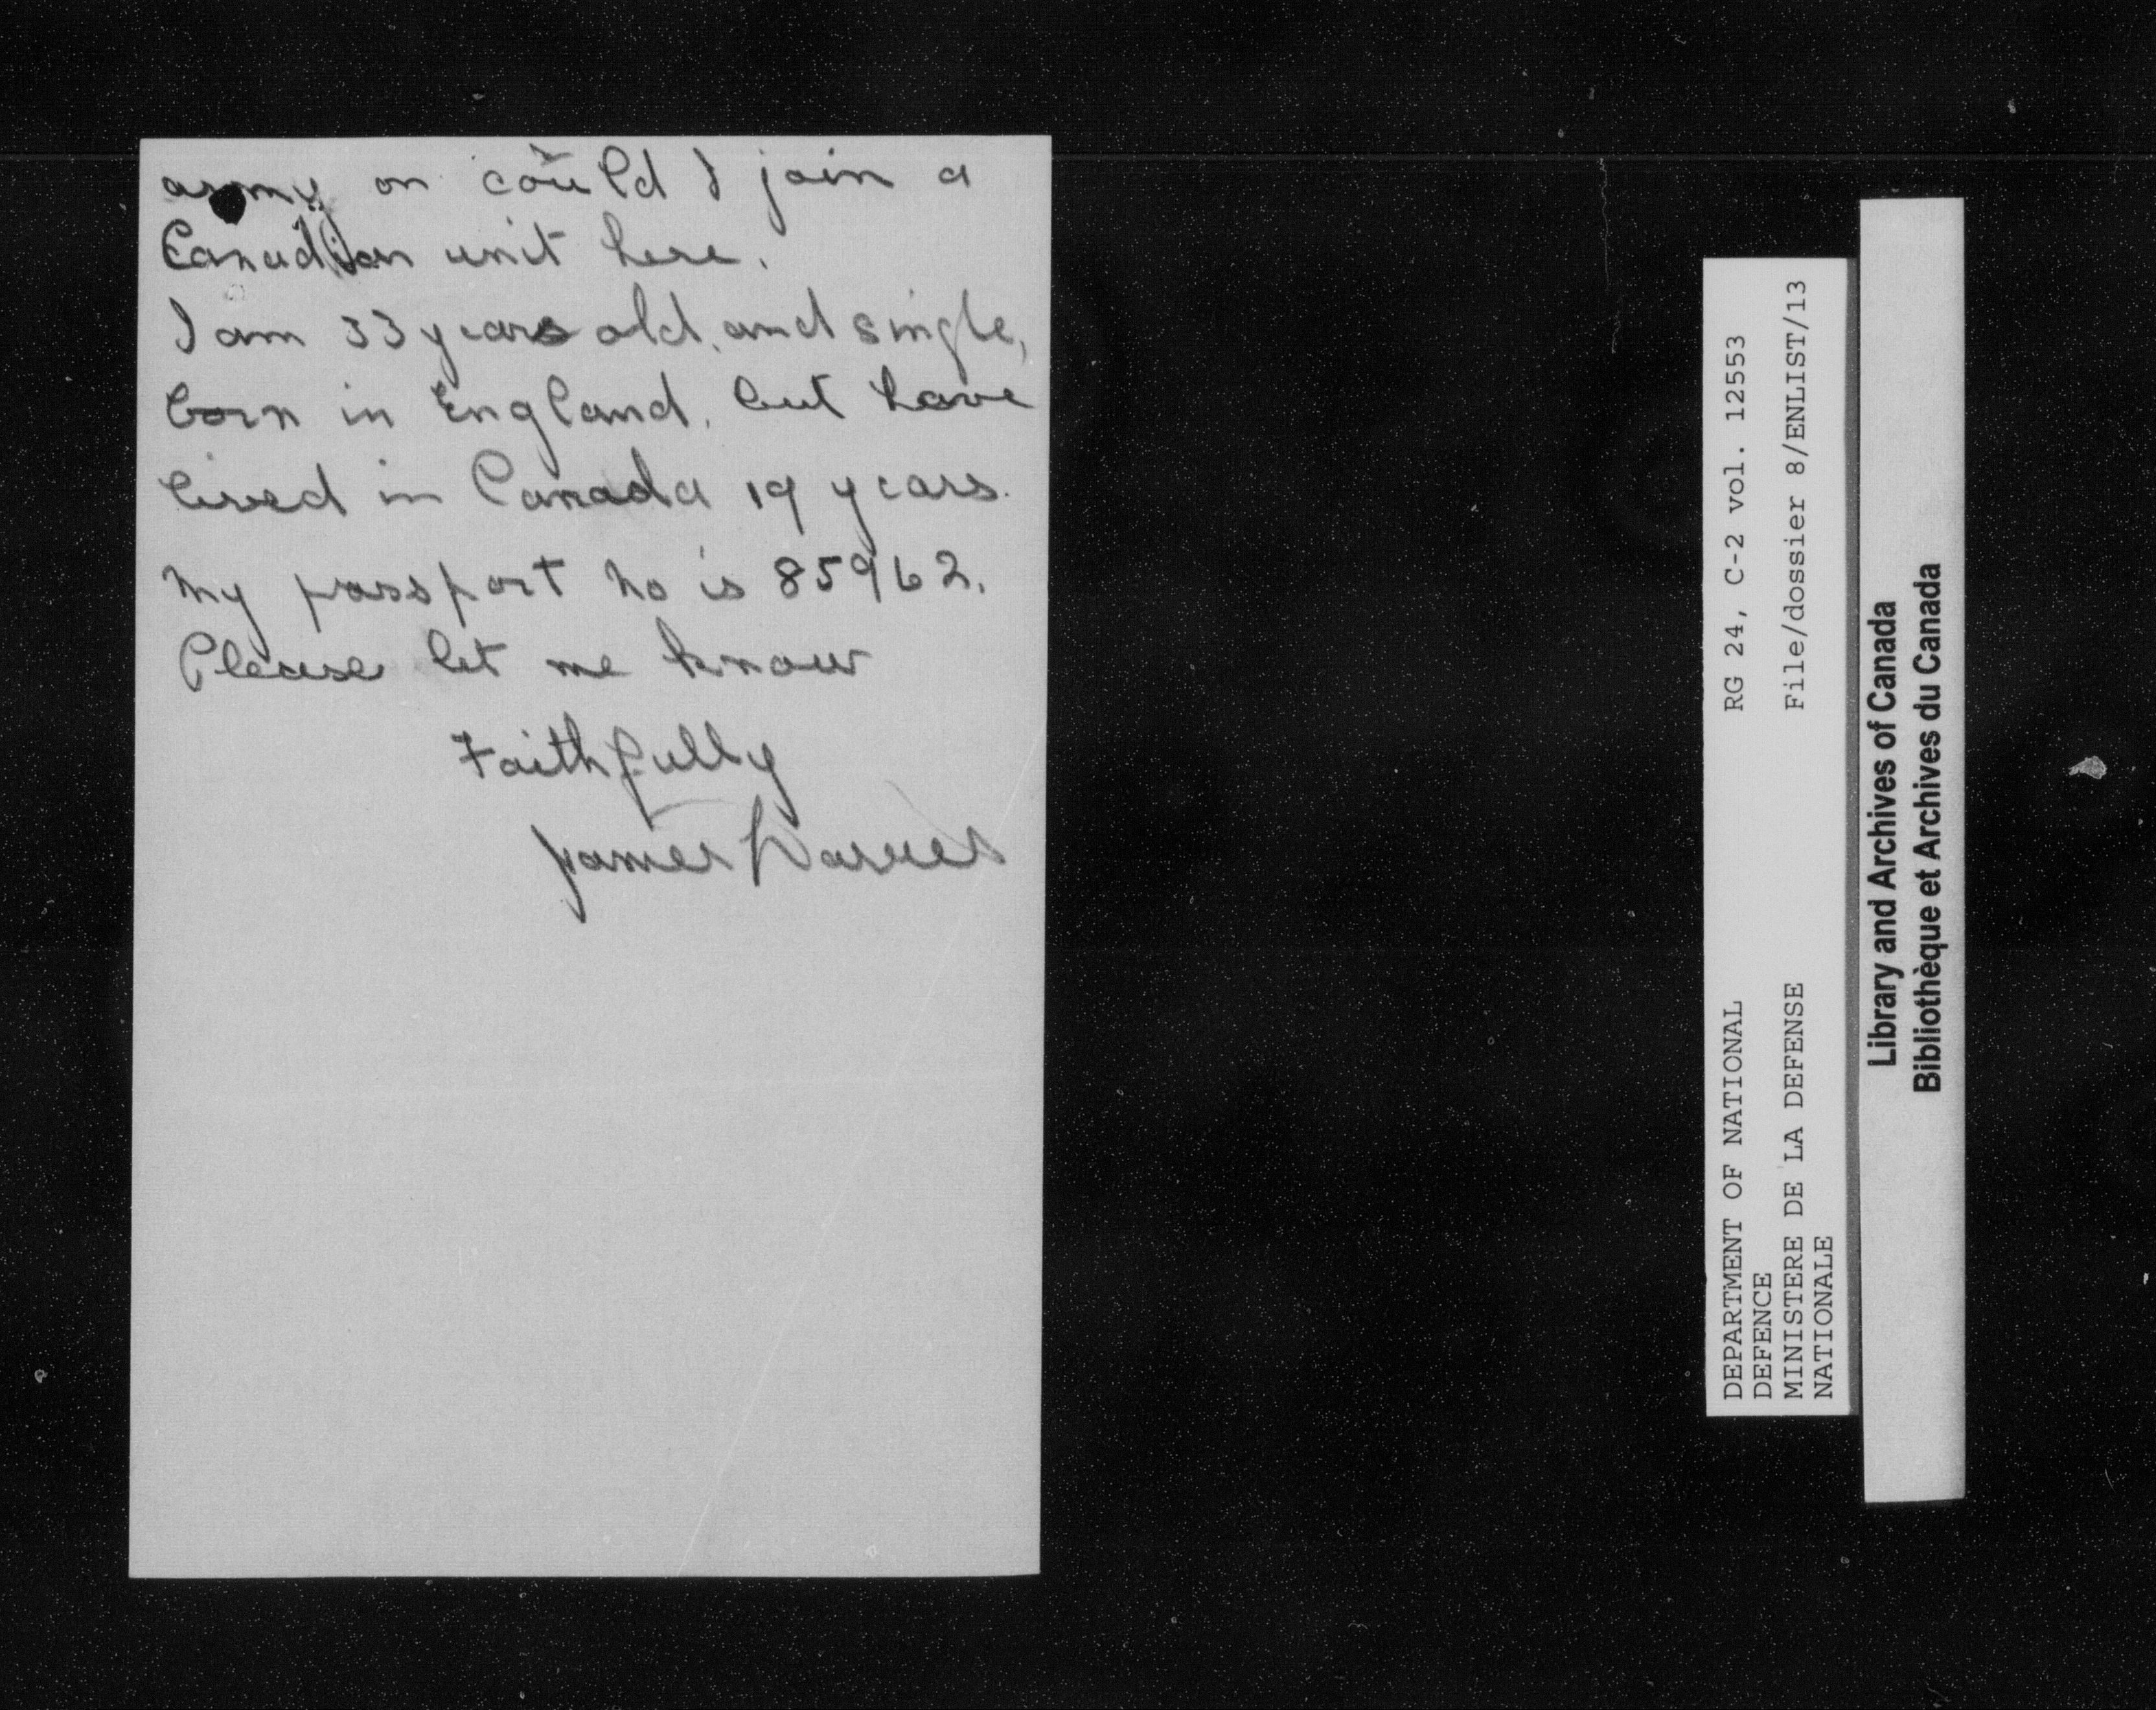 army or could I join a
Canadian unit here.
I am 33 years old, and single,
born in England, but have
lived in Canada 19 years.
My passport no is 85962.
Please let me know
Faithfully
James
RG 24, C-2 vol. 12553
File/dossier 8/ENLIST/13
DEPARTMENT OF NATIONAL
DEFENCE
MINISTERE DE LA DEFENSE
NATIONALE
Library and Archives of Canada
Bibliothèque et Archives du Canada